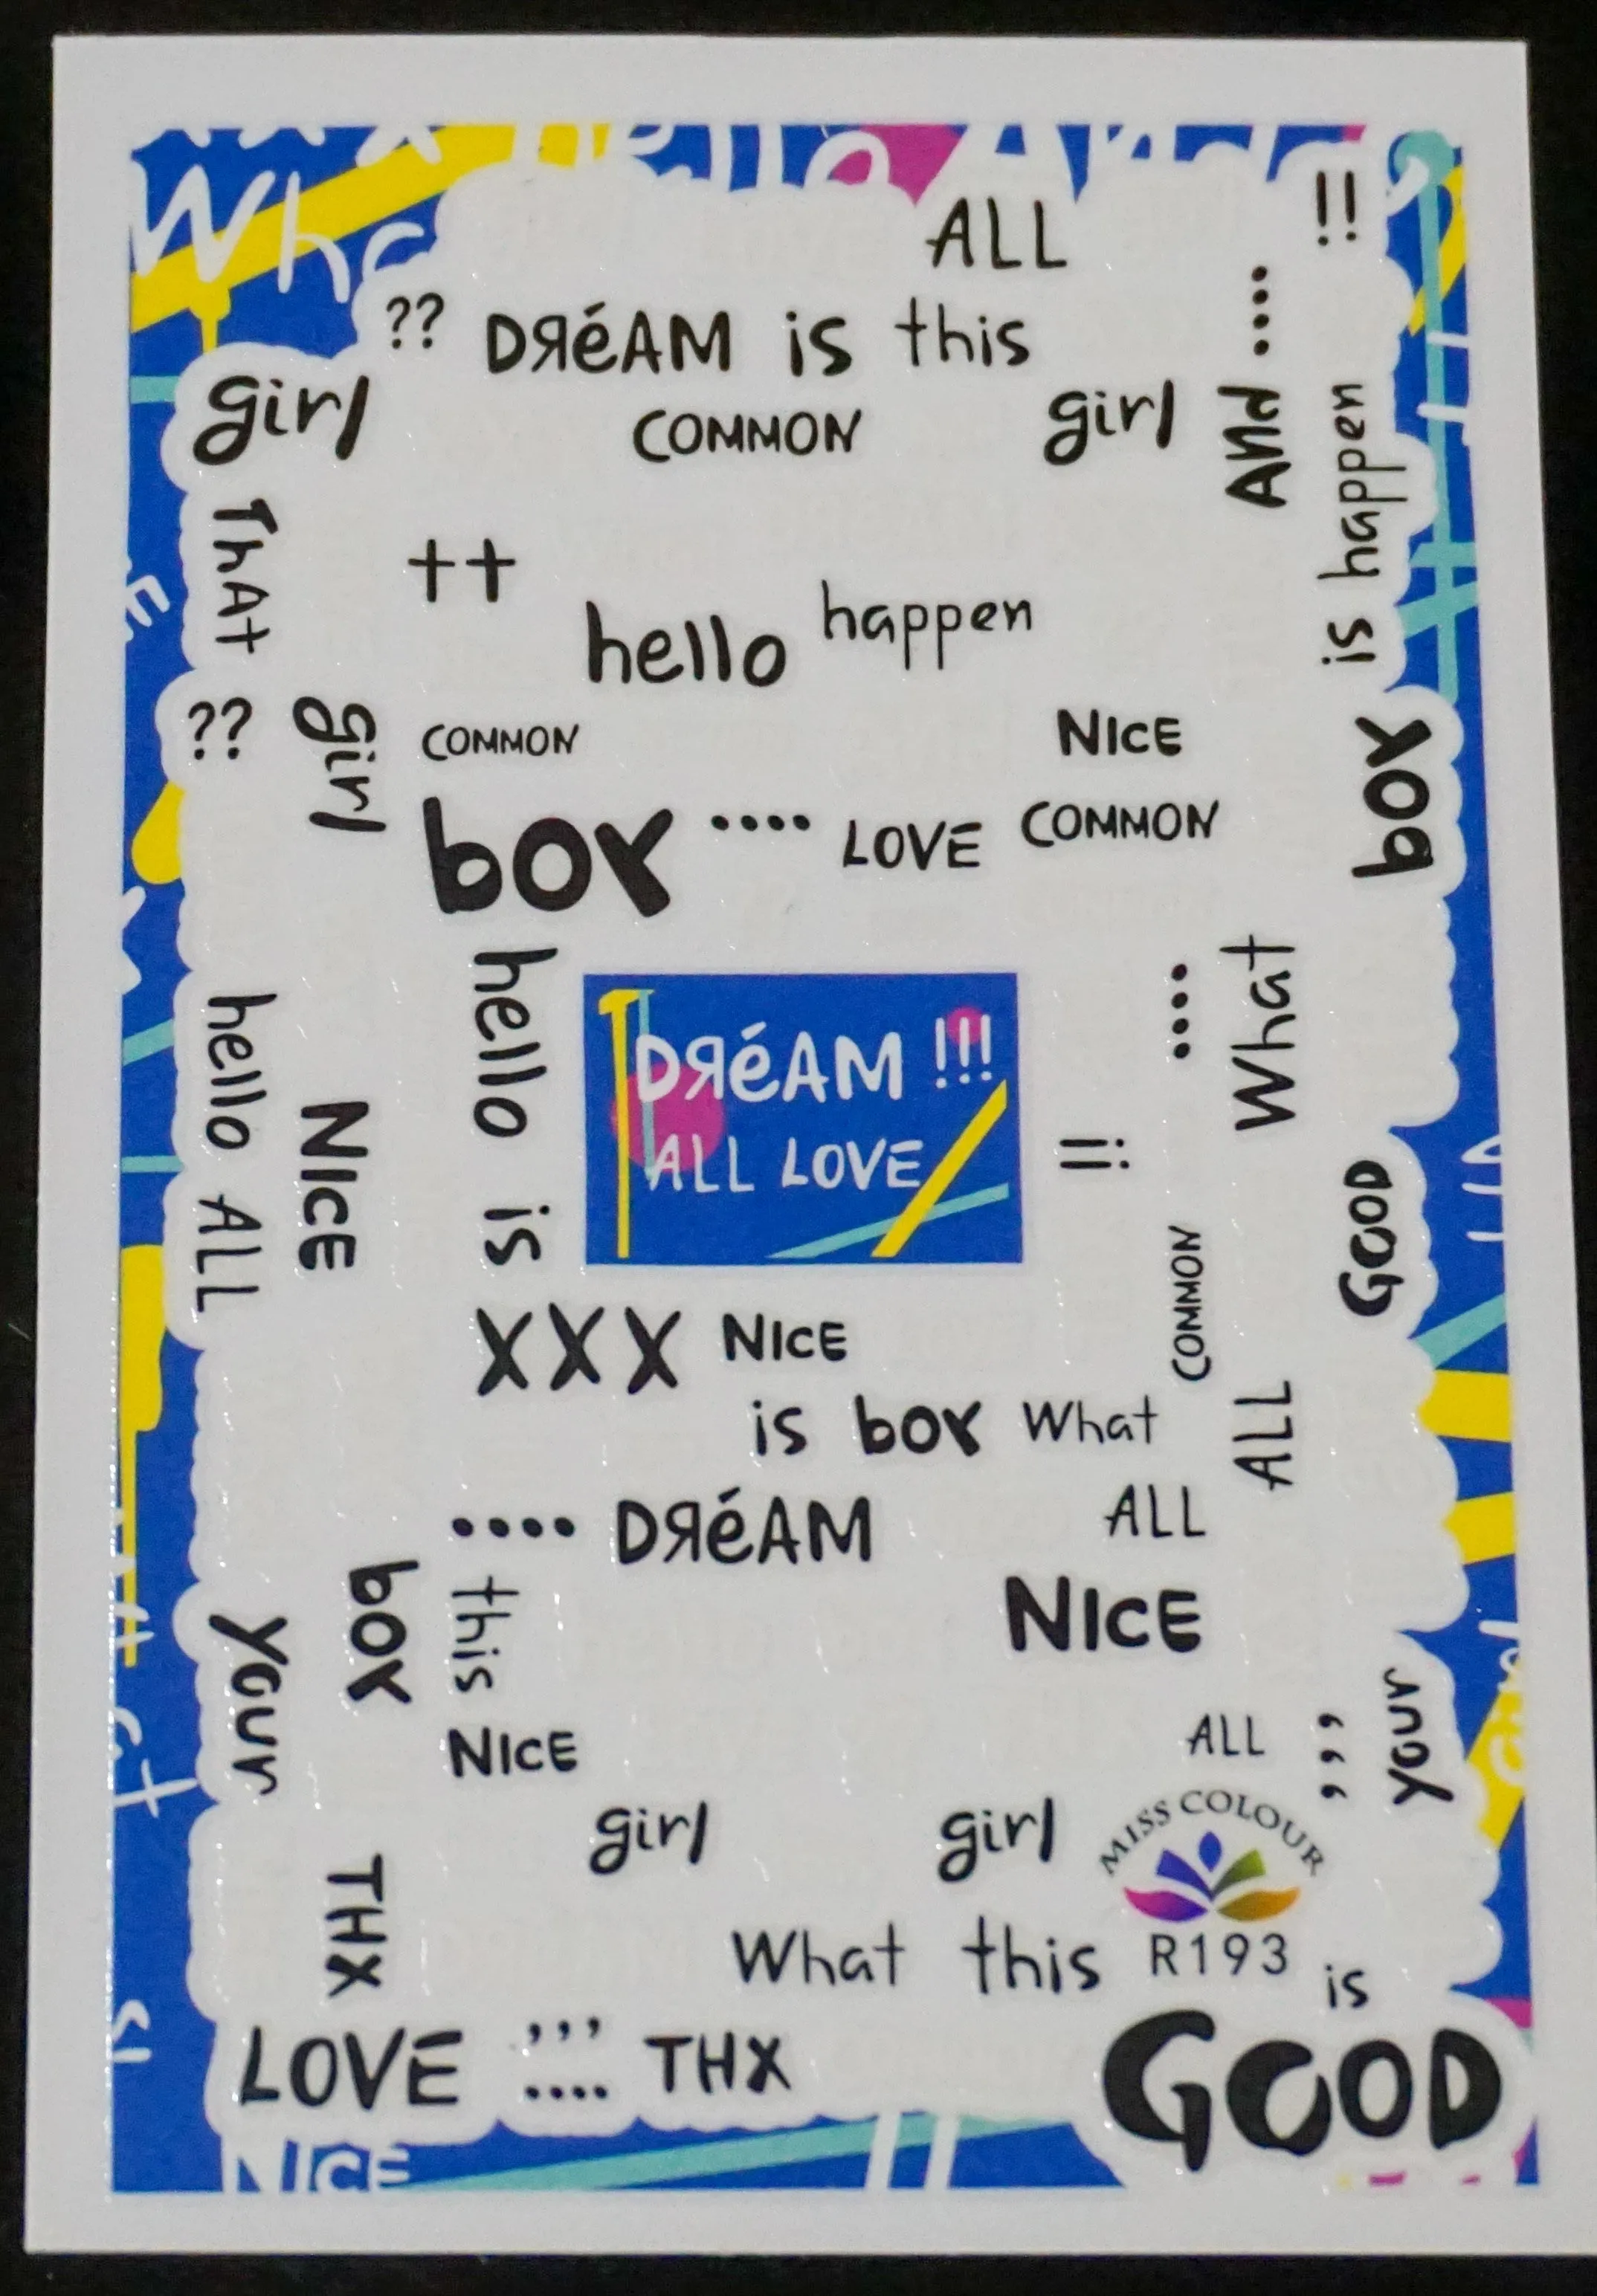 ALL
!!
?? DЯéAM is this
....
girl
COMMON
girl
And
is happen
ThAt
++
hello
happen
??
girl
COMMON
NICE
boy
boy
....
LOVE
COMMON
hello is
....
What
hello ALL
DЯéAM !!!
ALL LOVE
NICE
!!
GOOD
COMMON
XXX
NICE
is boy What
ALL
....
DЯéAM
ALL
boy
this
NICE
Your
Your
NICE
ALL
,,,
girl
girl
MISS COLOUR
THX
What this
R193
is
LOVE
,,,
....
THX
GOOD
NICE